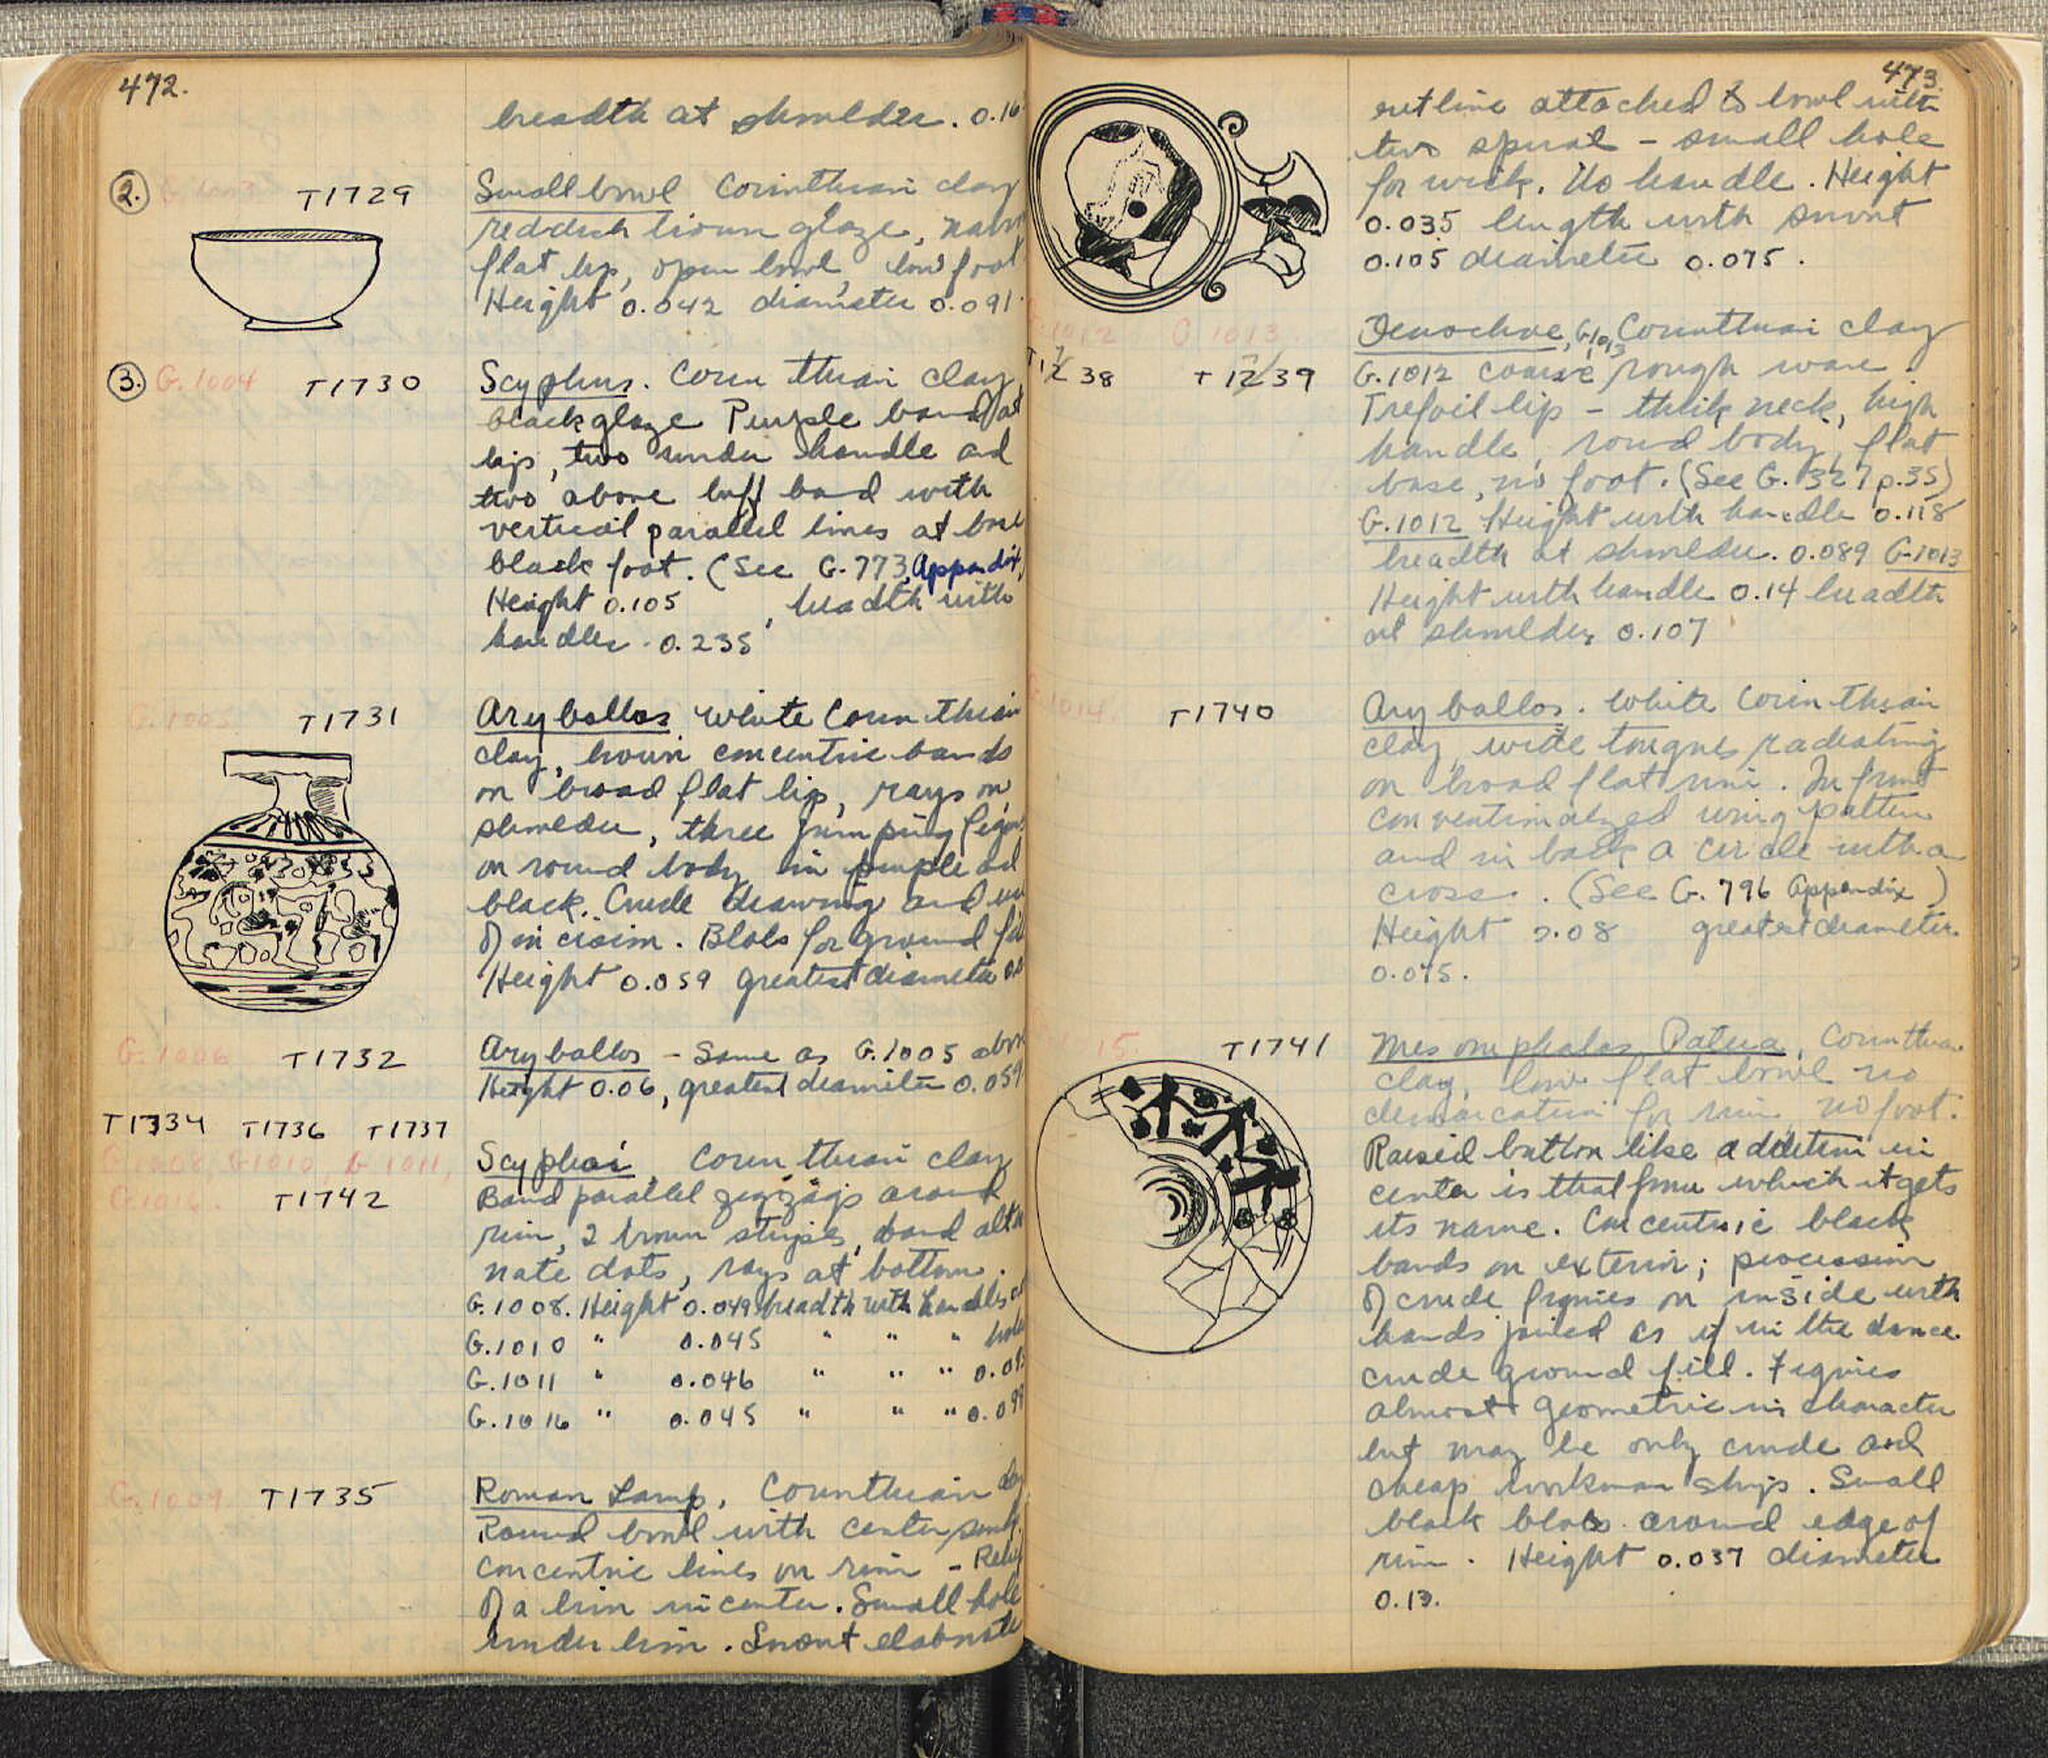 472.
breadth at shoulder. 0.16
2. G.1003 T1729
Small bowl Corinthian clay
reddish brown glaze, narrow
flat lip, open bowl, low foot
Height 0.042 diameter 0.091.
3. G.1004 T1730
Scyphus. Corinthian clay
black glaze Purple band at
lip, two under handle and
two above buff band with
vertical parallel lines at base
black foot. (See G.773, Appendix,
Height 0.105, breadth with
handles. 0.235
G.1005. T1731
Aryballos White Corinthian
clay, brown concentric bands
on broad flat lip, rays on
shoulder, three jumping figures
on round body in purple and
black. Crude drawing and
of incision. Blobs for ground
Height 0.059 greatest diameter
G.1006 T1732
Aryballos – Same as G.1005 above
Height 0.06, greatest diameter 0.059
T1734 T1736 T1737
G.1008, G1010, G1011,
G.1016. T1742
Scyphoi, Corinthian clay
Band parallel zigzags around
rim, 2 brown stripes, band alter
nate dots, rays at bottom.
G.1008. Height 0.049 breadth with handles
G.1010 " 0.045 " " "
G.1011 " 0.046 " " "
G.1016 " 0.045 " " " 0.099
G.1009. T1735
Roman Lamp, Corinthian
Round bowl with center
concentric lines on rim – Relief
of a lion in center. Small hole
under lion. Snout elaborate
473.
outline attached to bowl with
two spiral – small hole
for wick. No handle. Height
0.035 length with snout
0.105 diameter 0.075.
G.1012 G.1013.
T1738 T1739
Oenochoe, G1013 Corinthian clay
G.1012 coarse rough ware.
Trefoil lip – thick neck, high
handle, round body, flat
base, no foot. (See G. 327 p.35)
G.1012 Height with handle 0.118
breadth at shoulder. 0.089 G.1013
Height with handle 0.14 breadth
at shoulder, 0.107
G.1014. T1740
Aryballos. White Corinthian
clay, wide tongues radiating
on broad flat rim. In front
conventionalized wing pattern
and in back a circle with a
cross. (See G.796 Appendix)
Height 0.08 greatest diameter.
0.075.
15. T1741
Mesomphalos Patera, Corinthian
clay, low flat bowl no
demarcation for rim, no foot.
Raised button like addition in
center is that from which it gets
its name. Concentric black
bands on exterior; procession
of crude figures on inside with
hands joined as if in the dance
crude ground fill. Figures
almost geometric in character
but may be only crude and
cheap workmanship. Small
black blobs around edge of
rim. Height 0.037 diameter
0.13.